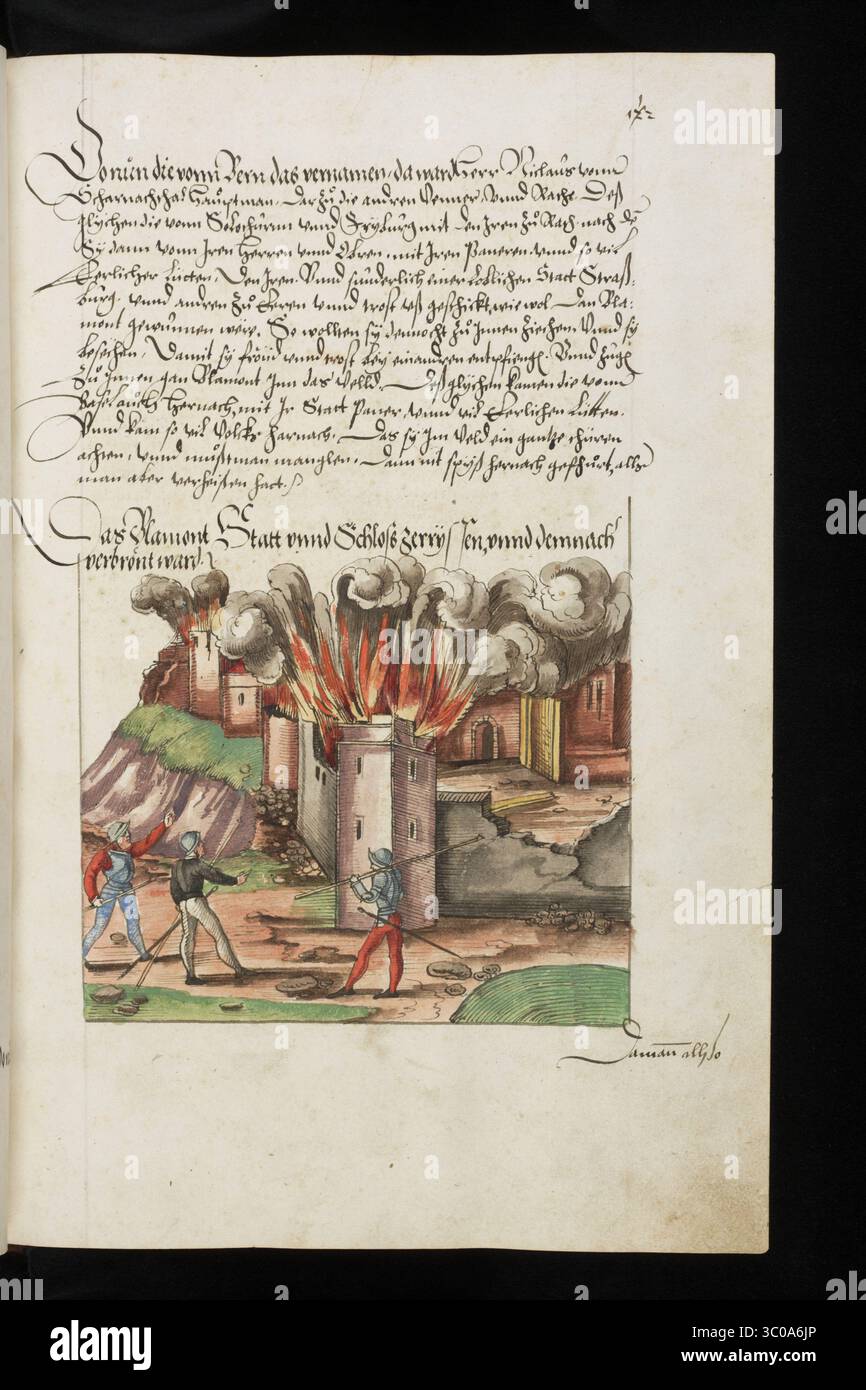 Do nun die vonn Bern das vernamen, da ward herr Niclaus vonn
Scharnachthal Houptman, Darzů die andren Venner, unnd Räthe, Deß
glychen die vonn Solothurnn unnd Fryburg mit den Iren zů Roß, nach dem
Sy dann vonn Iren herren unnd Obren, mit Iren Paneren, unnd so vil
Eerlicher Lütten, Den Iren, Unnd sunderlich einer Loblichen Statt Straß-
burg, unnd andren zů Eeren unnd trost uß geschickt, wie wol Dan Bla-
mont gewunnen were, So wollten sy dennocht zů Innen ziechen, Unnd sy
besechen, Damit sy fröüd unnd trost bey einandren entpfiengen, Unnd zugen
zů Innen gan Blamont Inn das velld, Deß glychen kamen die vonn
Basel ouch hernach, mit Ir Statt Paner, unnd vil Eerlichen Lütten,
Unnd kam so vil Volcks harnach, Das sy Im Veld ein gantze
achten, unnd můßt man manglen, Dann nit spyß hernach gefůrt, alls
man aber verheissen hatt,
Das Blamont Statt unnd Schloß zerryssen, unnd demnach
verbrönt ward
Daman allso
alamy
www.alamy.com
Image ID: 3C0A6JP